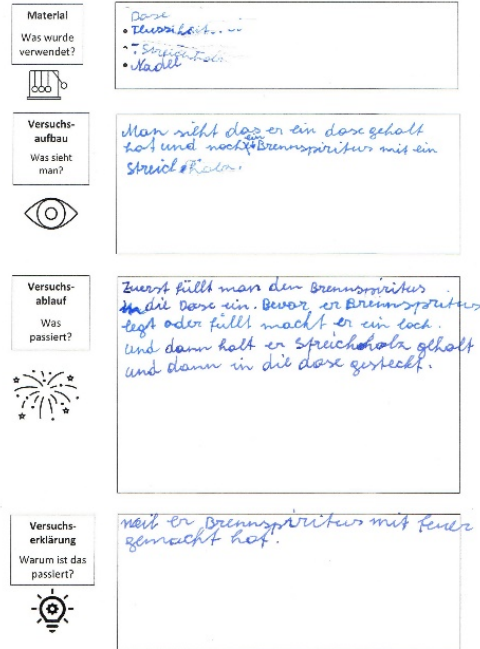 Material
Was wurde
verwendet?
Dose
• Flüssikeit....
• Streichholz
• Nadel
Versuchs-
aufbau
Was sieht
man?
Man sieht das er ein dose geholt
hat und noch ein Brennspiritus mit ein
Streichholz.
Versuchs-
ablauf
Was
passiert?
Zuerst füllt man den Brennspiritus
in die Dose ein. Bevor er Brennspritus
legt oder füllt macht er ein loch.
und dann halt er Streichholz geholt
und dann in die dose gesteckt.
Versuchs-
erklärung
Warum ist das
passiert?
weil er Brennspiritus mit feuer
gemacht hat.